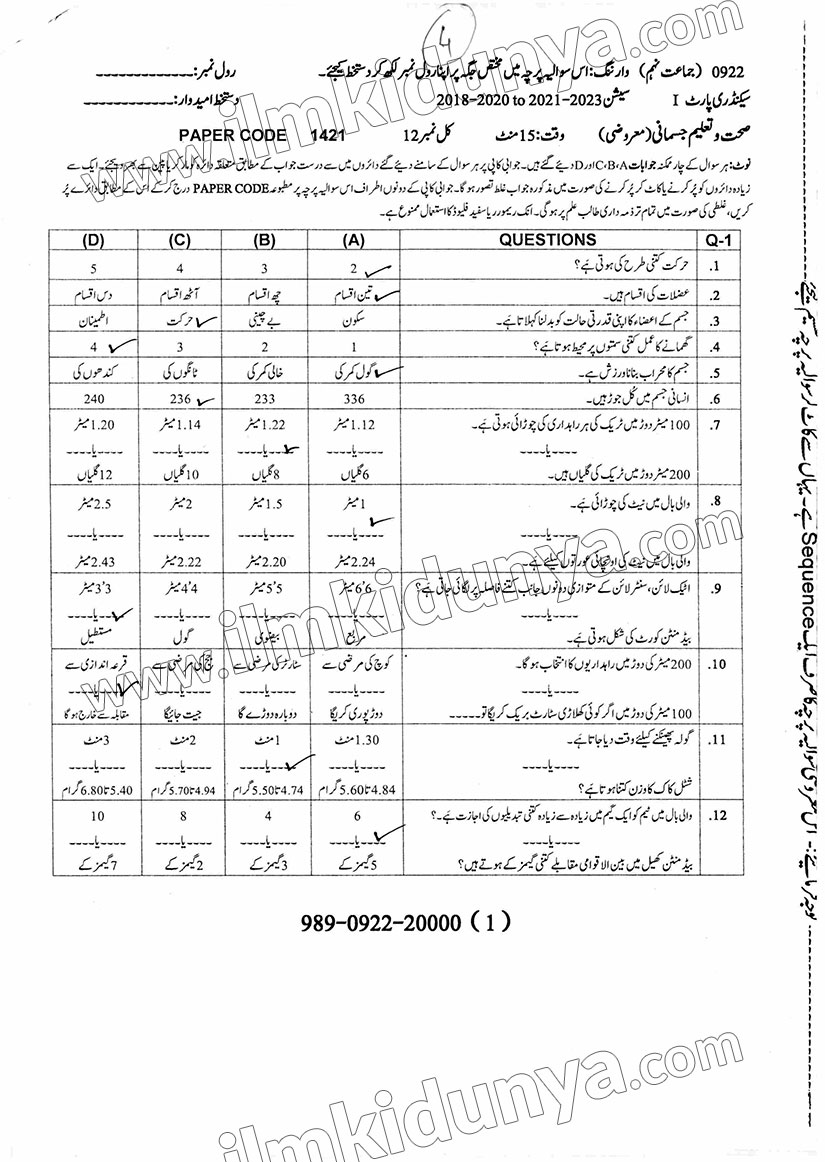 4
0922 (جماعت نہم) وارننگ: اس سوالیہ پرچہ میں مختص جگہ پر اپنا رول نمبر لکھ کر دستخط کیجئے۔ رول نمبر:-------------
سیکنڈری پارٹ I سیشن 2018-2020 to 2021-2023 دستخط امیدوار:-------------
صحت و تعلیم جسمانی (معروضی) وقت: 15 منٹ کل نمبر 12 PAPER CODE 1421
نوٹ: ہر سوال کے چار ممکنہ جوابات C،B،A اور D دیئے گئے ہیں۔ جوابی کاپی پر ہر سوال کے سامنے دیئے گئے دائروں میں سے درست جواب کے مطابق متعلقہ دائرہ کو مارکر یا پین سے بھر دیجئے۔ ایک سے
زیادہ دائروں کو پُر کرنے یا کاٹ کر پُر کرنے کی صورت میں مذکورہ جواب غلط تصور ہوگا۔ جوابی کاپی کے دونوں اطراف اس سوالیہ پرچہ پر مطبوعہ PAPER CODE درج کر کے اس کے مطابق دائرے پُر
کریں، غلطی کی صورت میں تمام تر ذمہ داری طالب علم پر ہوگی۔ انک ریموور یا سفید فلیوڈ کا استعمال ممنوع ہے۔
Q-1 QUESTIONS (A) (B) (C) (D)
1. حرکت کتنی طرح کی ہوتی ہے؟ 2 3 4 5
2. عضلات کی اقسام ہیں۔ تین اقسام چھ اقسام آٹھ اقسام دس اقسام
3. جسم کے اعضاء کا اپنی قدرتی حالت کو بدلنا کہلاتا ہے۔ سکون بے چینی حرکت اطمینان
4. گھمانے کا عمل کتنی سمتوں پر محیط ہوتا ہے؟ 1 2 3 4
5. جسم کا محراب بنانا ورزش ہے۔ گول کمر کی خالی کمر کی ٹانگوں کی کندھوں کی
6. انسانی جسم میں کُل جوڑ ہیں۔ 336 233 236 240
7. 100 میٹر دوڑ میں ٹریک کی ہر راہداری کی چوڑائی ہوتی ہے۔ 1.12 میٹر 1.22 میٹر 1.14 میٹر 1.20 میٹر
----یا---- ----یا---- ----یا---- ----یا---- ----یا----
200 میٹر دوڑ میں ٹریک کی گلیاں ہیں۔ 6 گلیاں 8 گلیاں 10 گلیاں 12 گلیاں
8. والی بال میں نیٹ کی چوڑائی ہے۔ 1 میٹر 1.5 میٹر 2 میٹر 2.5 میٹر
----یا---- ----یا---- ----یا---- ----یا---- ----یا----
والی بال میں نیٹ کی اونچائی عورتوں کیلئے ہے۔ 2.24 میٹر 2.20 میٹر 2.22 میٹر 2.43 میٹر
9. اٹیک لائن، سنٹر لائن کے متوازی دونوں جانب کتنے فاصلہ پر لگائی جاتی ہے؟ 6'6 میٹر 5'5 میٹر 4'4 میٹر 3'3 میٹر
----یا---- ----یا---- ----یا---- ----یا---- ----یا----
بیڈمنٹن کورٹ کی شکل ہوتی ہے۔ مربع بیضوی گول مستطیل
10. 200 میٹر کی دوڑ میں راہداریوں کا انتخاب ہوگا۔ کوچ کی مرضی سے سٹارٹر کی مرضی سے جج کی مرضی سے قرعہ اندازی سے
----یا---- ----یا---- ----یا---- ----یا---- ----یا----
100 میٹر کی دوڑ میں اگر کوئی کھلاڑی سٹارٹ بریک کریگا تو----- دوڑ پوری کریگا دوبارہ دوڑے گا جیت جائیگا مقابلہ سے خارج ہوگا
11. گولہ پھینکنے کیلئے وقت دیا جاتا ہے۔ 1.30 منٹ 1 منٹ 2 منٹ 3 منٹ
----یا---- ----یا---- ----یا---- ----یا---- ----یا----
شٹل کاک کا وزن کتنا ہوتا ہے؟ 4.84 تا 5.60 گرام 4.74 تا 5.50 گرام 4.94 تا 5.70 گرام 5.40 تا 6.80 گرام
12. والی بال میں ٹیم کو ایک گیم میں زیادہ سے زیادہ کتنی تبدیلیوں کی اجازت ہے۔؟ 6 4 8 10
----یا---- ----یا---- ----یا---- ----یا---- ----یا----
بیڈمنٹن کھیل میں بین الاقوامی مقابلے کتنی گیمز کے ہوتے ہیں؟ 5 گیمز کے 3 گیمز کے 2 گیمز کے 7 گیمز کے
989-0922-20000 (1)
www.ilmkidunya.com
www.ilmkidunya.com
www.ilmkidunya.com
ilmkidunya.com